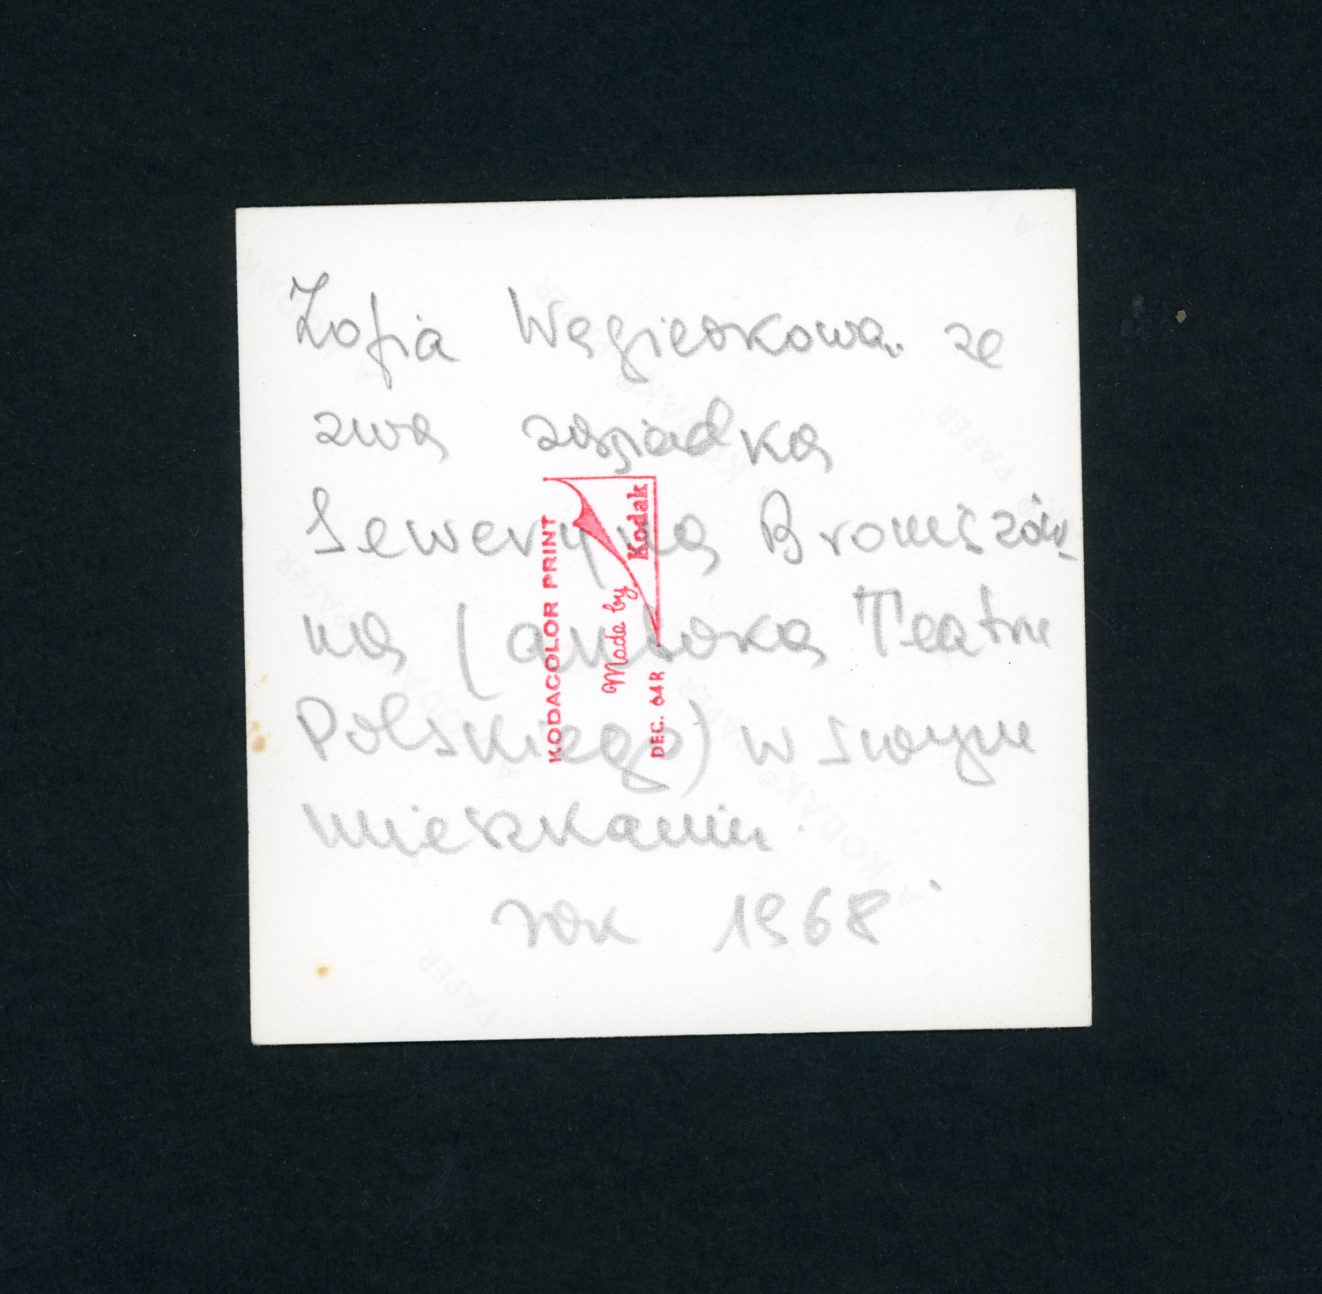 Zofia Węgierkowa ze
swą sąsiadką
Seweryną Broniszów
ną (aktorką Teatru
Polskiego) w swoym
mieszkaniu.
rok 1968
KODACOLOR PRINT
Made by
Kodak
DEC. 64R
KODAK
PAPER